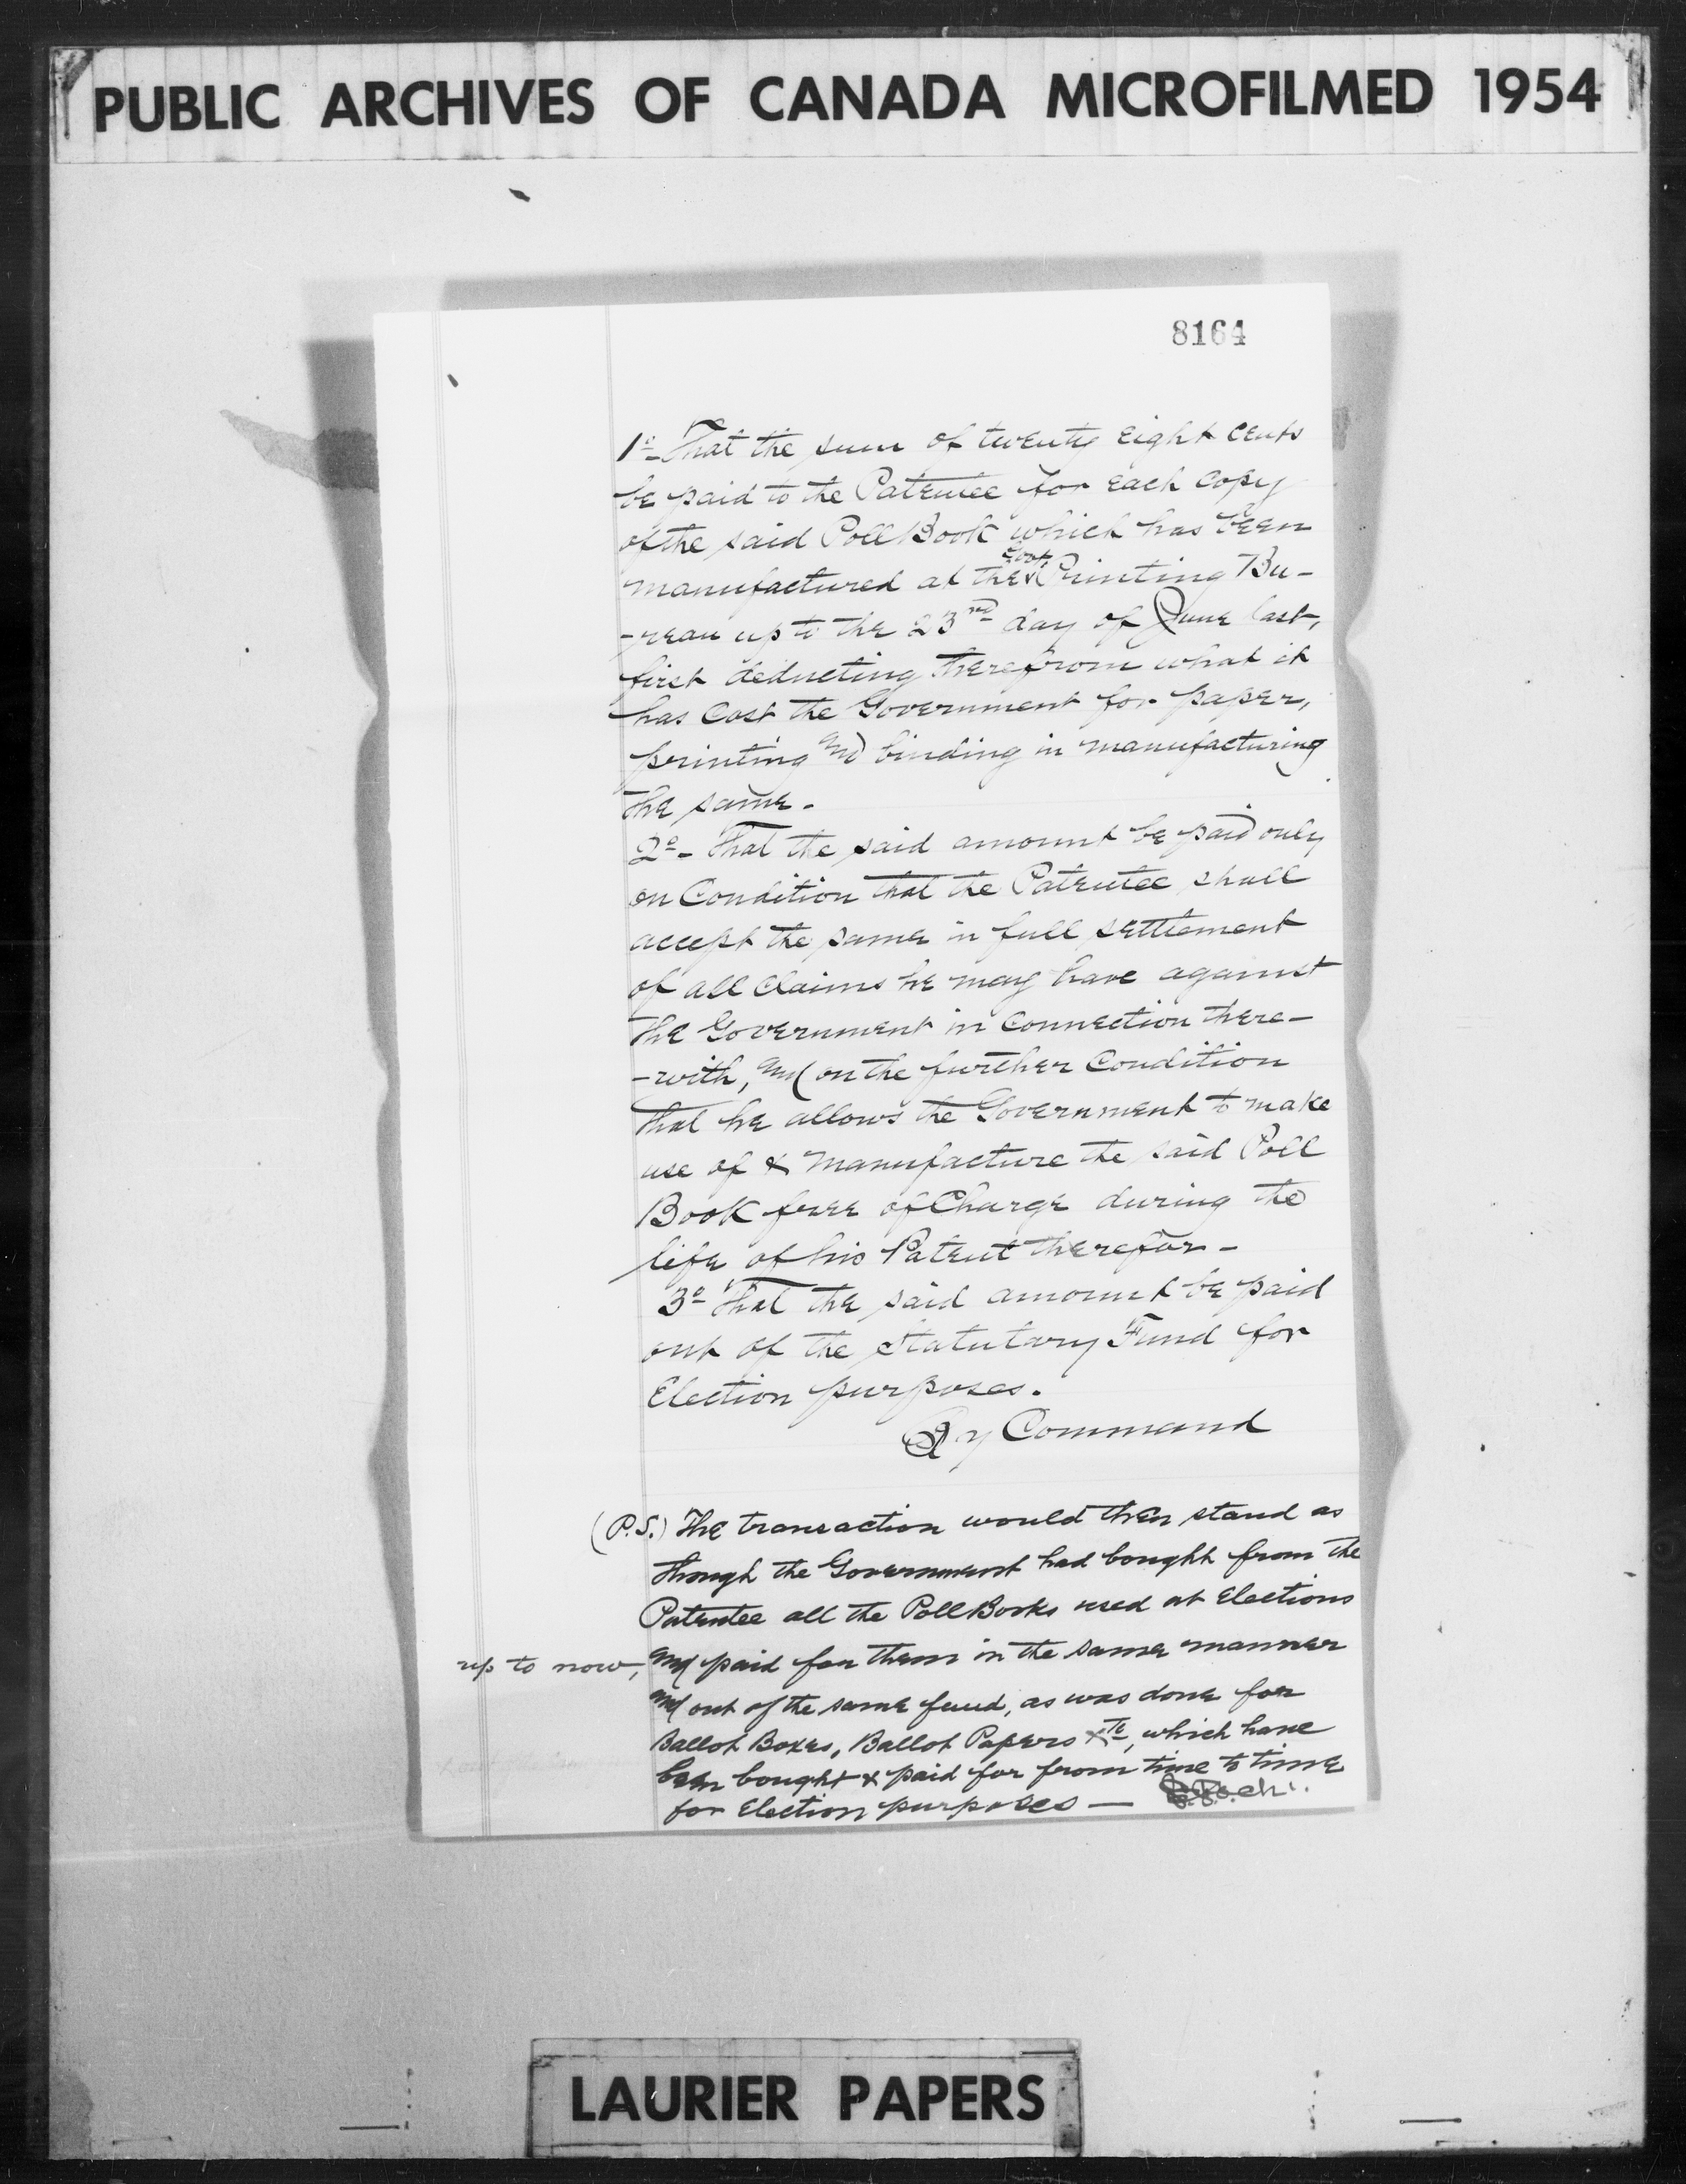 PUBLIC ARCHIVES OF CANADA MICROFILMED 1954
8164
1º- That the sum of twenty eight cents
be paid to the Patentee for each copy
of the said Poll Book which has been
manufactured at the Govt Printing Bu-
-reau up to the 23rd day of June last,
first deducting therefrom what it
has Cost the Government for paper,
printing and binding in manufacturing
the same.
2º- That the said amount be paid only
on Condition that the Patentee shall
accept the same in full settlement
of all Claims he may have against
the Government in Connection there-
-with, and on the further Condition
that he allows the Government to make
use of & manufacture the said Poll
Book free of Charge during the
life of his Patent therefor-
3º That the said amount be paid
out of the Statutary Fund for
Election purposes.
By Command
(P.S.) The transaction would then stand as
though the Government had bought from the
Patentee all the Poll Books used at Elections
up to now, and paid for them in the same manner
and out of the same fund, as was done for
Ballot Boxes, Ballot Papers &Te, which have
been bought & paid for from time to time
for Election purposes —
LAURIER PAPERS